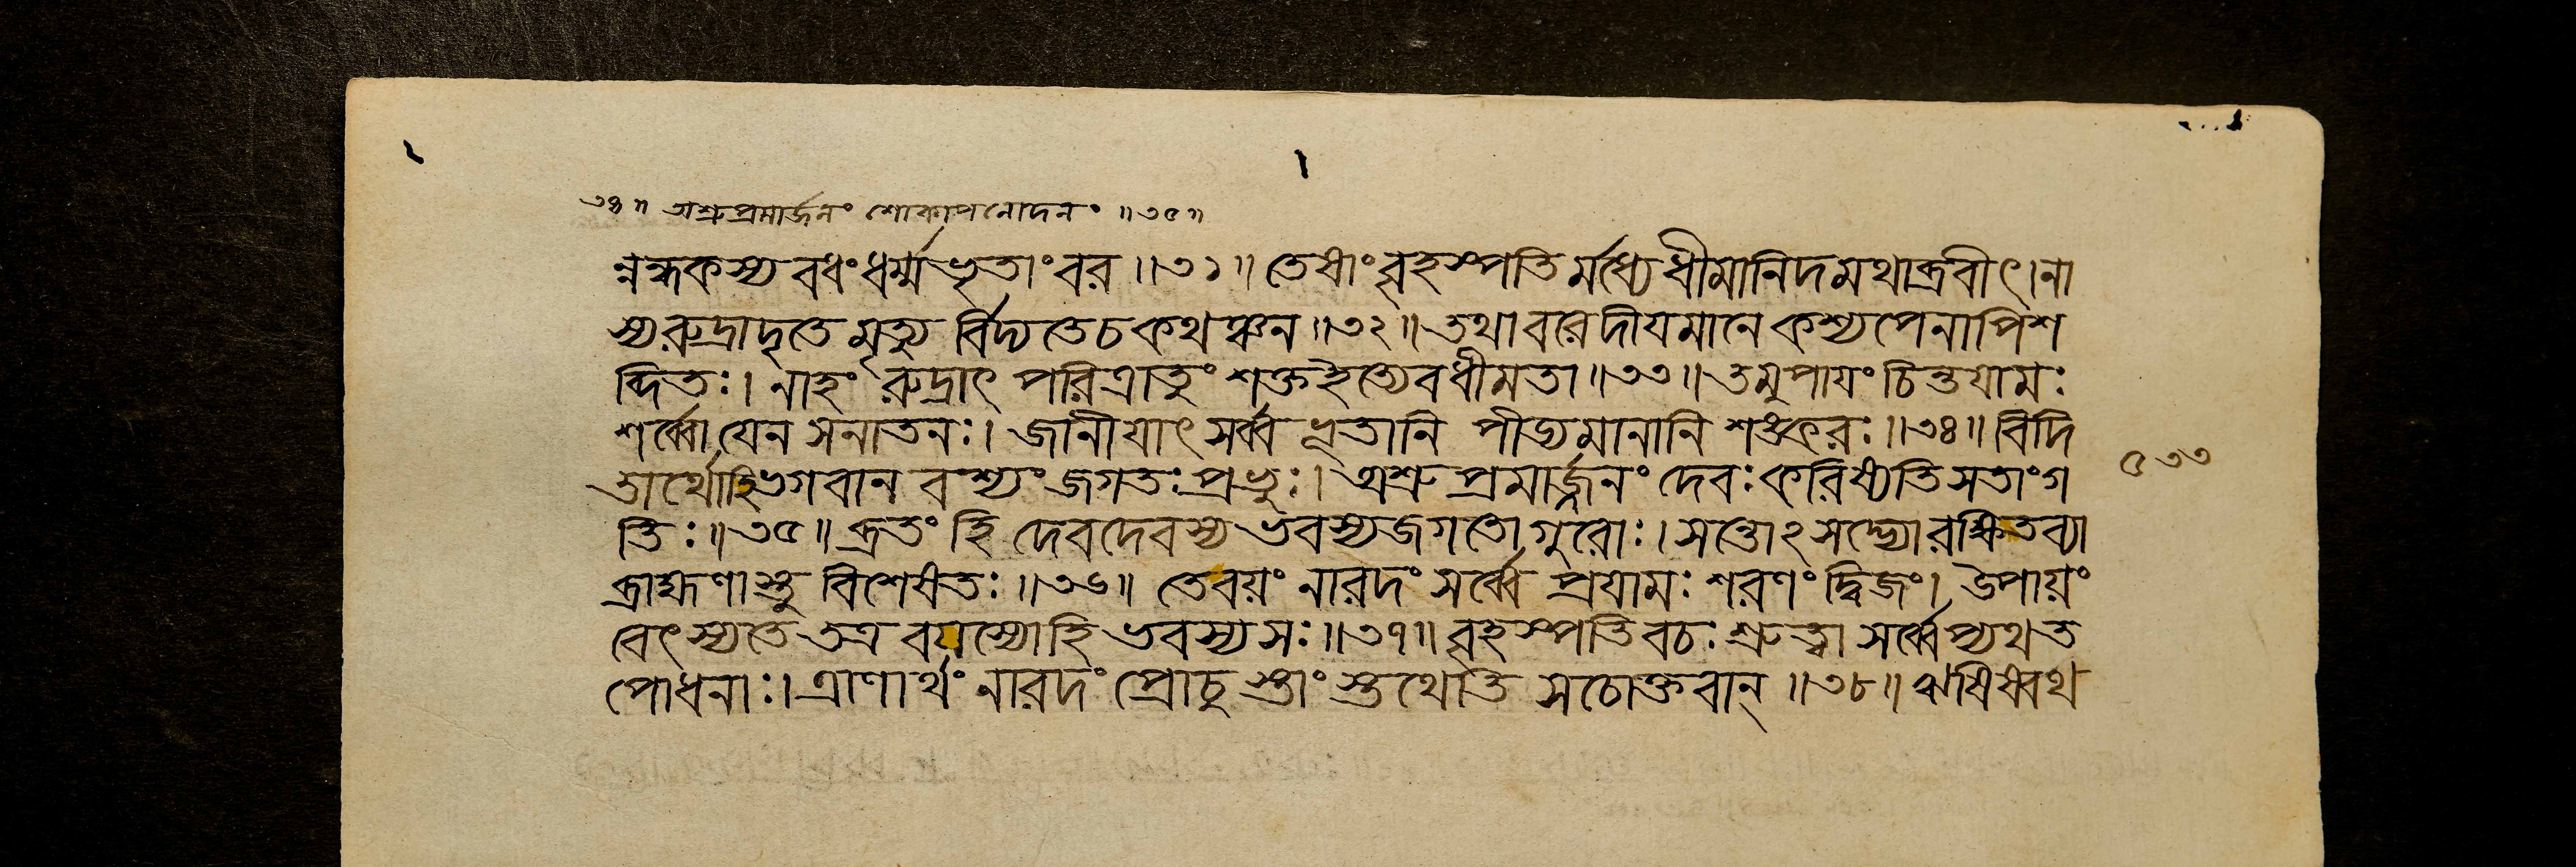 ৩৪॥ অশ্রুপ্রমার্জ্জনং শোকাপনোদনং ॥৩৫॥
ন্নন্ধকস্য বধং ধর্ম্মভৃতাং বর ॥৩১॥ তেষাং বৃহস্পতি র্মধ্যে ধীমানিদমথাব্রবীৎ। না
স্য রুদ্রাদৃতে মৃত্যু র্বিদ্যতে চ কথঞ্চন ॥৩২॥ তথা বরে দীযমানে কশ্যপেনাপি শ
ব্দিতঃ। নাহং রুদ্রাৎ পরিত্রাতুং শক্ত ইত্যেব ধীমতা ॥৩৩॥ তমুপাযং চিন্তযামঃ
শর্ব্বো যেন সনাতনঃ। জানীযাৎ সর্ব্ব ভূতানি পীড্যমানানি শঙ্করঃ ॥৩৪॥ বিদি
তার্থো হি ভগবান বশ্যং জগতঃ প্রভুঃ। অশ্রু প্রমার্জ্জনং দেবঃ করিষ্যতি সতাং গ
তিঃ ॥৩৫॥ ব্রতং হি দেবদেবস্য ভবস্য জগতো গুরোঃ। সন্তোঽসদ্ভ্যো রক্ষিতব্যা
ব্রাহ্মণাস্তু বিশেষতঃ ॥৩৬॥ তে বয়ং নারদং সর্ব্বে প্রযামঃ শরণং দ্বিজং। উপায়ং
বেৎস্যতে তত্র বযস্যো হি ভবস্য সঃ ॥৩৭॥ বৃহস্পতি বচঃ শ্রুত্বা সর্ব্বেপ্যথ ত
পোধনাঃ। ত্রাণার্থং নারদং প্রোচু স্তাং স্তথেতি স চোক্তবান্ ॥৩৮॥ ঋষিষ্বথ
৫৩৩